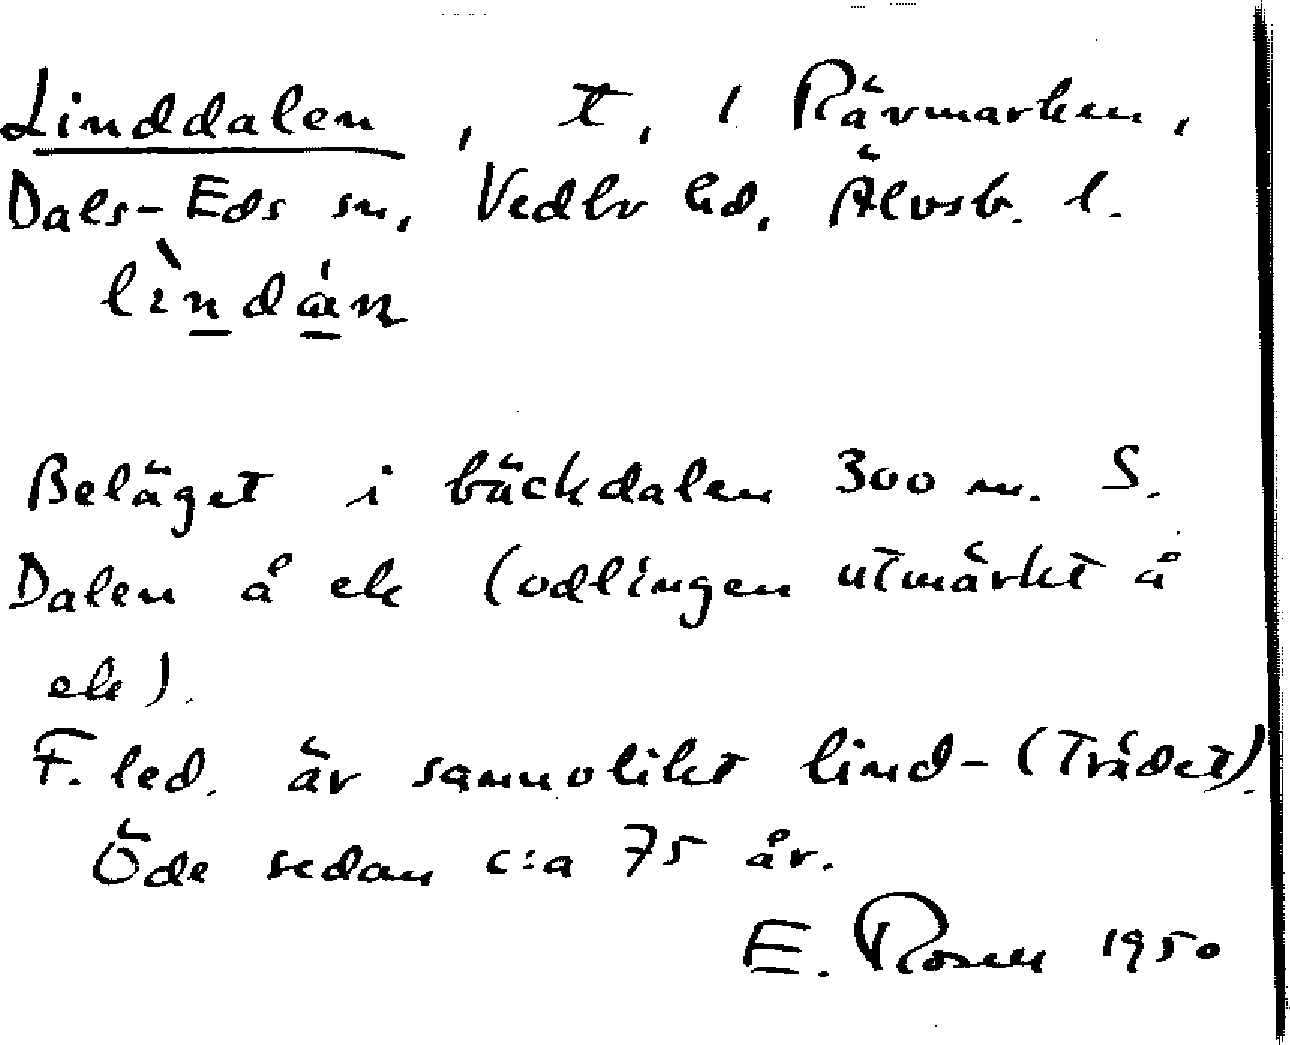 Linddalen, t, i Rävmarken,
Dals-Eds sn, Vedbo hd, Älvsb. l.
lìndán
Beläget i bäckdalen 300 m. S.
Dalen å ek (odlingen utmärkt å
ek).
F. led. är sannolikt lind- (Trädet).
Öde sedan c:a 75 år.
E. Rosen 1950